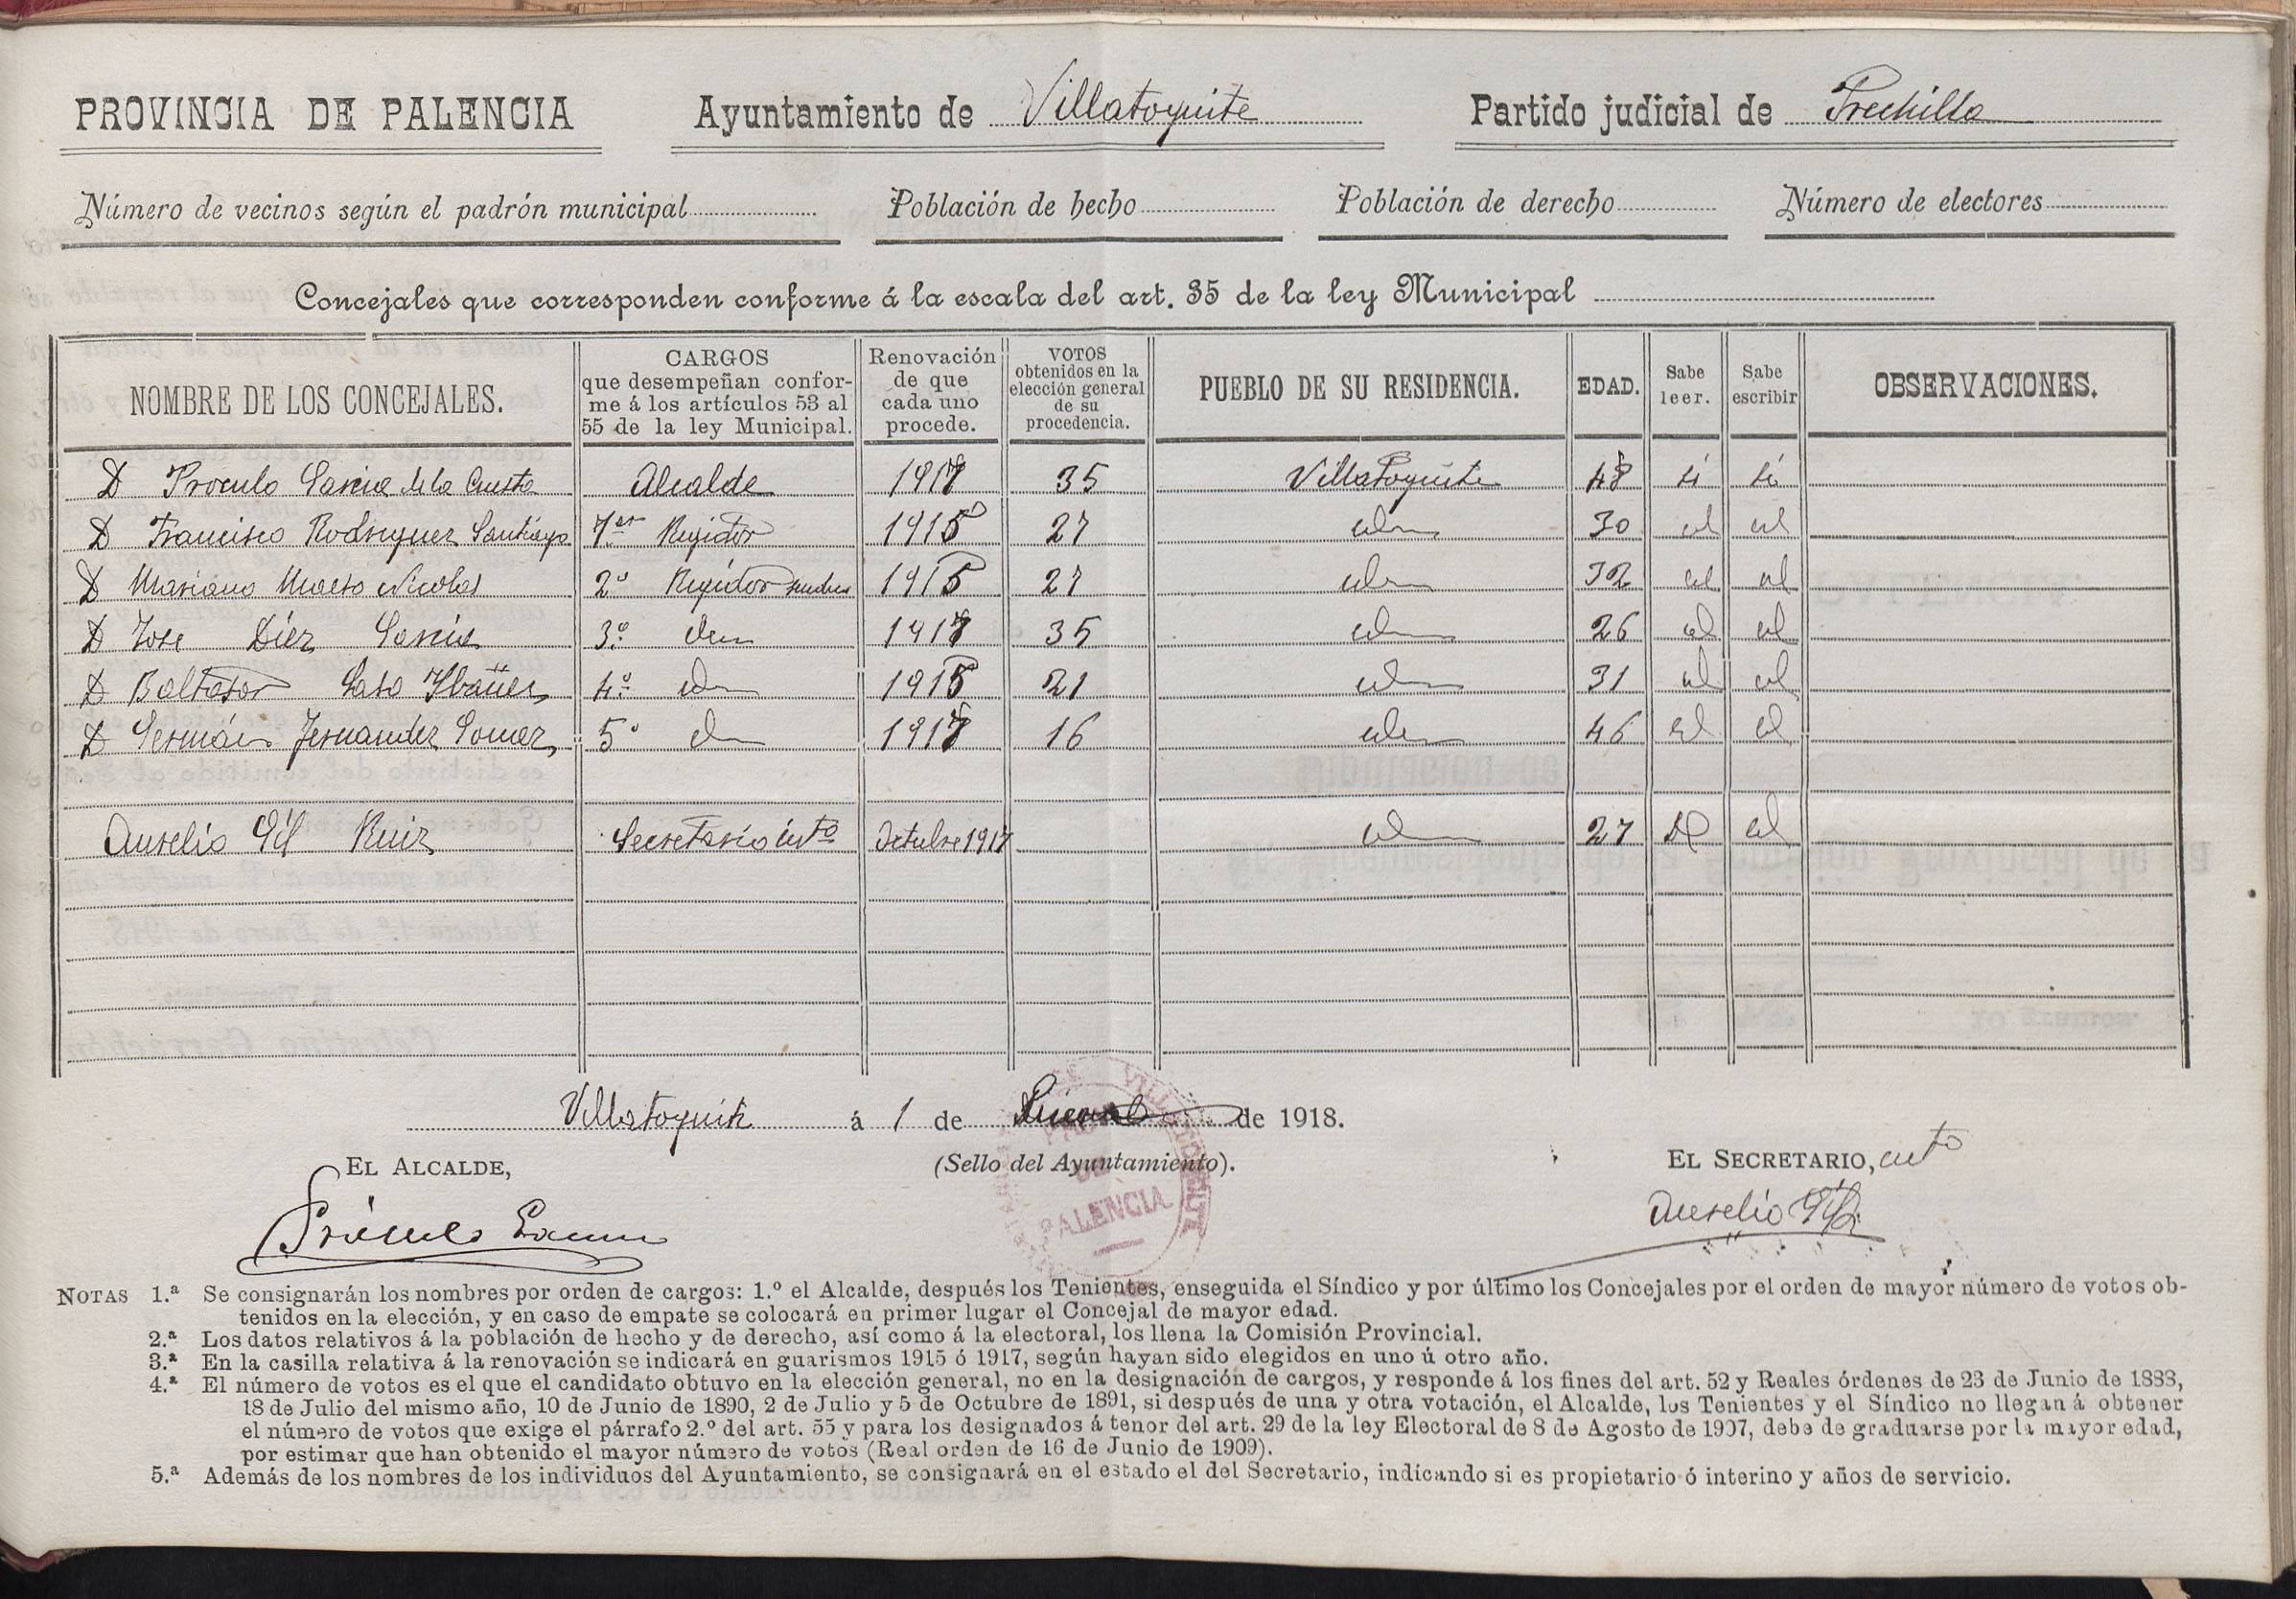 PROVINCIA DE PALENCIA Ayuntamiento de Villatoquite Partido judicial de Frechilla
Número de vecinos según el padrón municipal Población de hecho Población de derecho Número de electores
Concejales que corresponden conforme á la escala del art. 35 de la ley Municipal
NOMBRE DE LOS CONCEJALES. CARGOS que desempeñan confor-me á los artículos 53 al 55 de la ley Municipal. Renovación de que cada uno procede. VOTOS obtenidos en la elección general de su procedencia. PUEBLO DE SU RESIDENCIA. EDAD. Sabe leer. Sabe escribir OBSERVACIONES.
D Proculo Garcia de la Cuesta Alcalde 1917 35 Villatoquite 48 si si
D Francisco Rodriguez Santiago 1er Regidor 1915 27 idem 30 id id
D Mariano Maeso Nicolas 2º Regidor 1915 27 idem 32 id id
D Jose Diez Garcia 3º idem 1917 35 idem 26 id id
D Baltasar Laso Ybañez 4º idem 1915 21 idem 31 id id
D Germán Fernandez Gomez 5º idem 1917 16 idem 46 id id
Aurelio Gil Ruiz Secretario intº Octubre 1917 idem 27 id id
Villatoquite á 1 de de 1918.
EL ALCALDE, (Sello del Ayuntamiento). EL SECRETARIO, intº
Próculo Garcia Aurelio Gil
PALENCIA
NOTAS 1.ª Se consignarán los nombres por orden de cargos: 1.º el Alcalde, después los Tenientes, enseguida el Síndico y por último los Concejales por el orden de mayor número de votos ob-
tenidos en la elección, y en caso de empate se colocará en primer lugar el Concejal de mayor edad.
2.ª Los datos relativos á la población de hecho y de derecho, así como á la electoral, los llena la Comisión Provincial.
3.ª En la casilla relativa á la renovación se indicará en guarismos 1915 ó 1917, según hayan sido elegidos en uno ú otro año.
4.ª El número de votos es el que el candidato obtuvo en la elección general, no en la designación de cargos, y responde á los fines del art. 52 y Reales órdenes de 23 de Junio de 1883,
18 de Julio del mismo año, 10 de Junio de 1890, 2 de Julio y 5 de Octubre de 1891, si después de una y otra votación, el Alcalde, los Tenientes y el Síndico no llegan á obtener
el número de votos que exige el párrafo 2.º del art. 55 y para los designados á tenor del art. 29 de la ley Electoral de 8 de Agosto de 1907, debe de graduarse por la mayor edad,
por estimar que han obtenido el mayor número de votos (Real orden de 16 de Junio de 1909).
5.ª Además de los nombres de los individuos del Ayuntamiento, se consignará en el estado el del Secretario, indicando si es propietario ó interino y años de servicio.